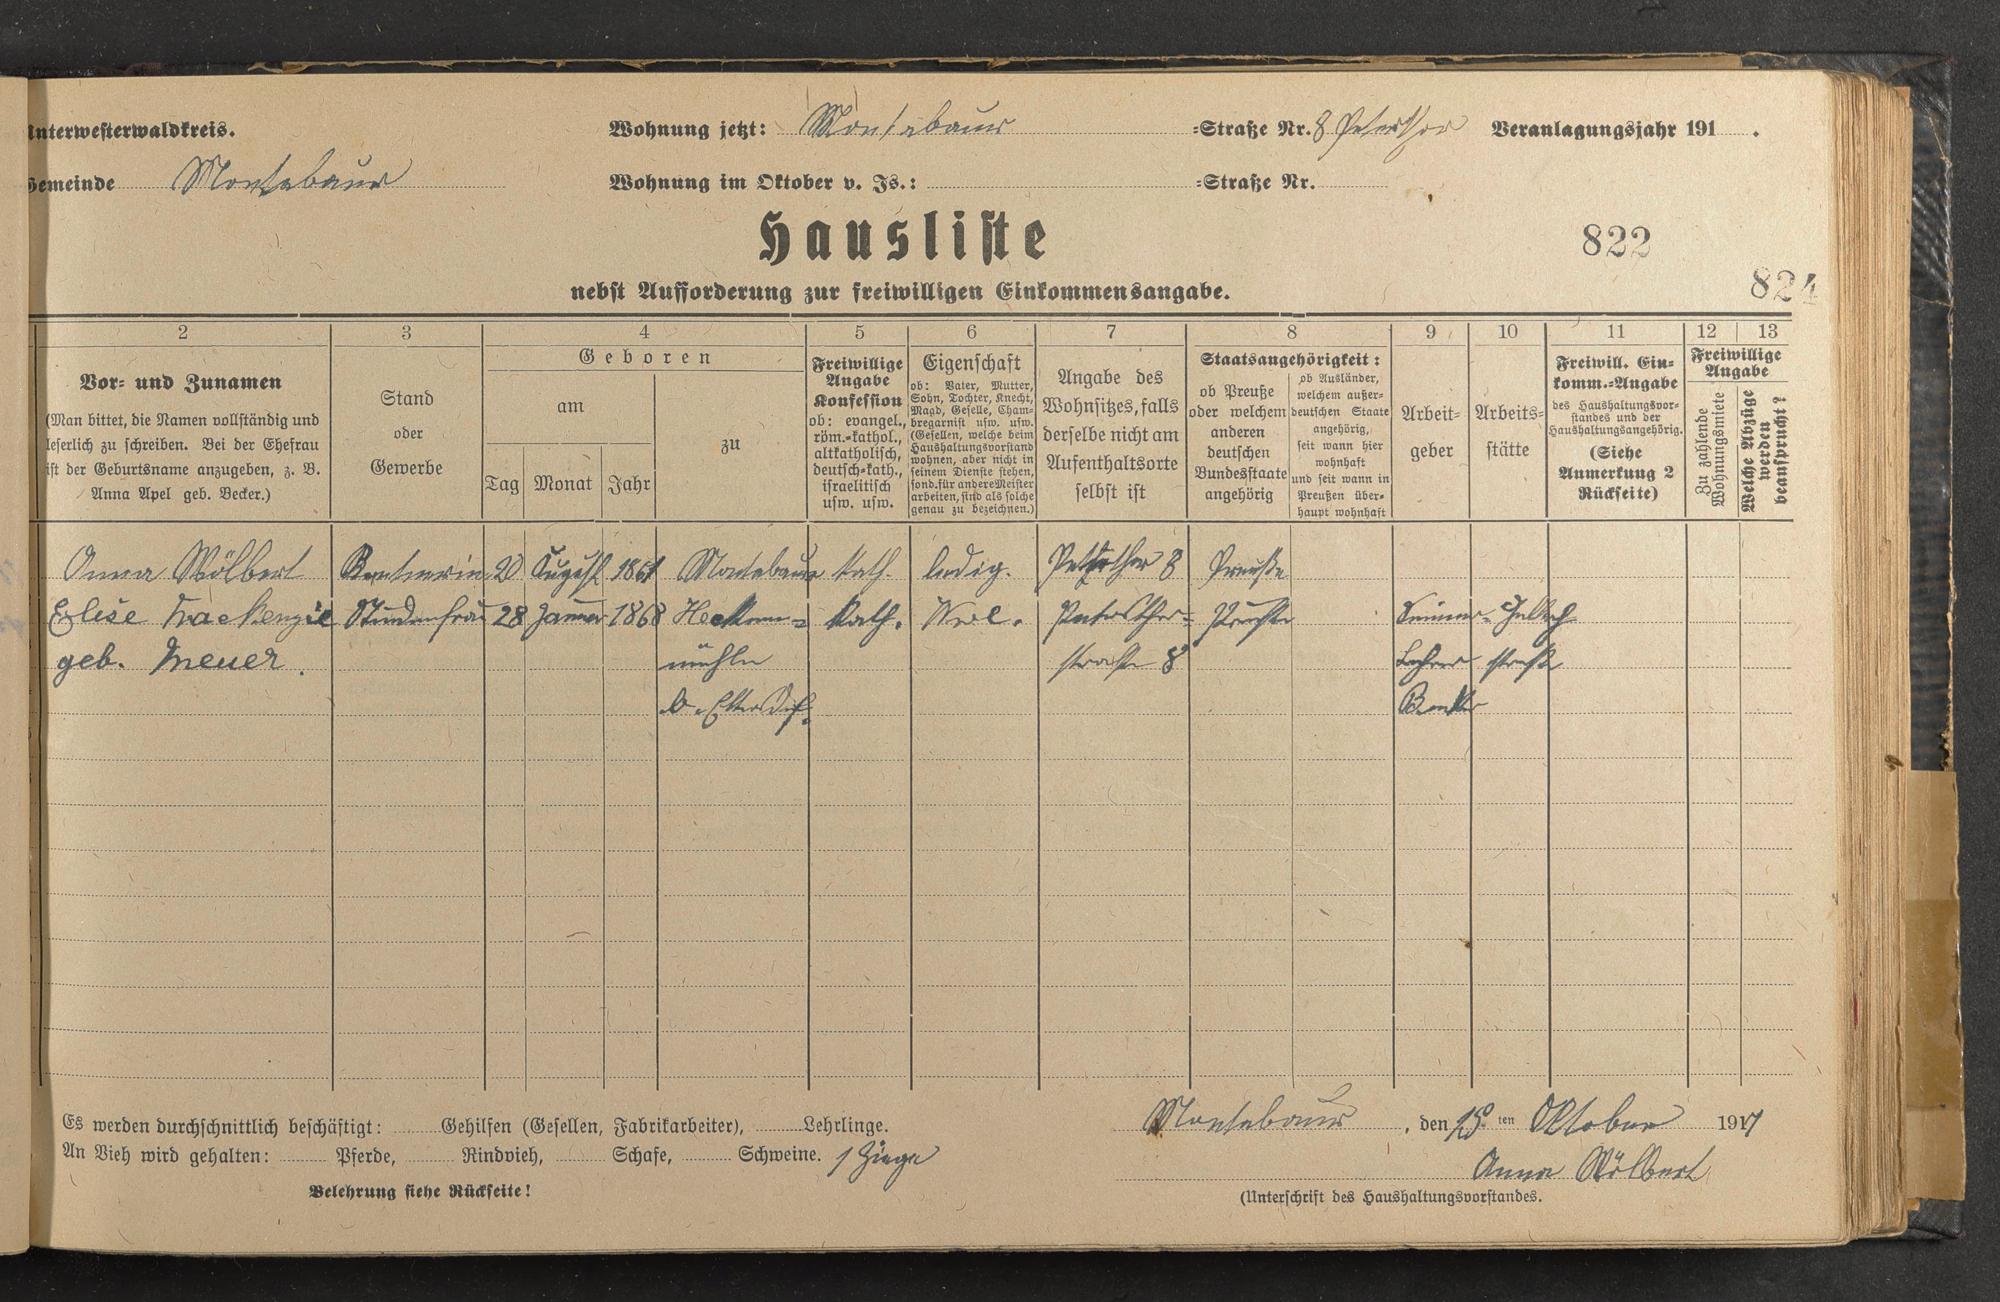 Unterwesterwaldkreis. Wohnung jetzt: Montabaur =Straße Nr. 8 Petersthor Veranlagungsjahr 191 .
Gemeinde Montabaur Wohnung im Oktober v. Js.: =Straße Nr.
Hausliste
822
824
nebst Aufforderung zur freiwilligen Einkommensangabe.
2 3 4 5 6 7 8 9 10 11 12 13
Vor- und Zunamen
(Man bittet, die Namen vollständig und
leserlich zu schreiben. Bei der Ehefrau
ist der Geburtsname anzugeben, z. B.
Anna Apel geb. Becker.)
Stand
oder
Gewerbe
Geboren
am
Tag Monat Jahr
zu
Freiwillige
Angabe
Konfession
ob: evangel.,
röm.-kathol.,
altkatholisch,
deutsch-kath.,
israelitisch
usw. usw.
Eigenschaft
ob: Vater, Mutter,
Sohn, Tochter, Knecht,
Magd, Geselle, Cham-
bregarnist usw. usw.
(Gesellen, welche beim
Haushaltungsvorstand
wohnen, aber nicht in
seinem Dienste stehen,
sond. für andere Meister
arbeiten, sind als solche
genau zu bezeichnen.)
Angabe des
Wohnsitzes, falls
derselbe nicht am
Aufenthaltsorte
selbst ist
Staatsangehörigkeit:
ob Preuße
oder welchem
anderen
deutschen
Bundesstaate
angehörig
ob Ausländer,
welchem außer-
deutschen Staate
angehörig,
seit wann hier
wohnhaft
und seit wann in
Preußen über-
haupt wohnhaft
Arbeit-
geber
Arbeits-
stätte
Freiwill. Ein-
komm.-Angabe
des Haushaltungsvor-
standes und der
Haushaltungsangehörig.
(Siehe
Anmerkung 2
Rückseite)
Freiwillige
Angabe
Zu zahlende
Wohnungsmiete
Welche Abzüge
werden
beansprucht?
Anna Wölbert Rentnerin 20 August 1861 Montabaur kath. ledig. 8 Preuße
Elise Mackenzie Stundenfrau 28 Januar 1868 kath. Petersthor-
geb. Meuer. mühle straße 8 Lehrer straße
Es werden durchschnittlich beschäftigt: Gehilfen (Gesellen, Fabrikarbeiter), Lehrlinge.
Montabaur, den 15. ten Oktober 1917
An Vieh wird gehalten: Pferde, Rindvieh, Schafe, Schweine. 1 Ziege
Anna Wölbert
Belehrung siehe Rückseite!
(Unterschrift des Haushaltungsvorstandes.